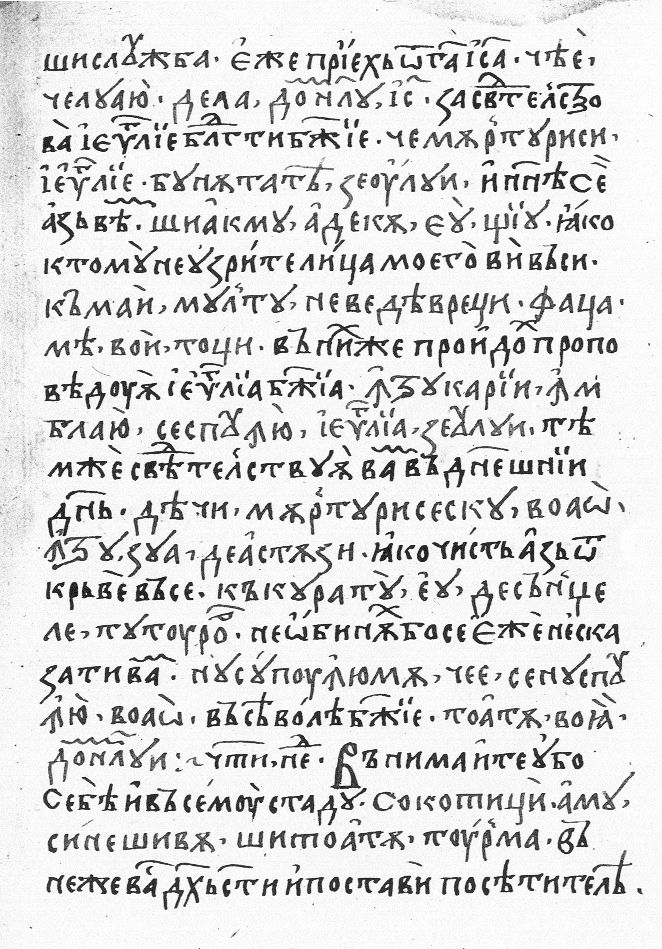 шислꙋжба· є҆же прїе҆хь ѿ га і҆са· чѣе҆,
челꙋаю҆· дела, домнꙋлꙋ, і҆с· засвѣтелсꙃо
ва҆ і҆еѵ҆лїе блгсти бжїе· чемѫртꙋриси,
і҆еѵ҆лїе· бꙋнѫтатѣ, зеꙋлꙋи, и҆ ннѣ се҆
а҆зь вѣ· шиа҆кмꙋ, а҆декѫ, єꙋ҆, щїꙋ· ꙗ҆ко
ктомꙋ҆ неꙋ҆зрителица моего҆ ви҆ вьси·
къмаи҆, мꙋлтꙋ, неведѣвреци· фаца·
мѣ, вои҆, тоци· въ ниⷯже прои҆доⷯ пропо
вѣдоуѫ҆ і҆еѵ҆лїа бжїа· ꙟ҆трꙋкарїи, ꙟ҆м
блаю҆, сеспꙋꙟю҆, і҆еѵ҆лїа, зеꙋлꙋи· тѣ
мже҆ свѣтелствꙋѫ҆ ва҆ въ днешнїи
днь· дѣчи, мѫртꙋрисескꙋ, воаѡ҆,
ꙟ҆трꙋ, зꙋа, деа҆стѫзи· ꙗ҆ко чисть а҆зь ѿ
крьве҆ вьсе· къкꙋратꙋ҆, є҆ꙋ, десънџе
ле, тꙋтоуроⷬ· не ѡ҆бинѫⷯ босе є҆же не҆ ска
зати ва· нꙋсꙋпоуꙟюмѫ, чее, сенꙋспꙋ
ꙟю҆, воаѡ҆· въсѣ волѣ бжїе· тоа҆тѫ, воꙗ҆·
домнꙋлꙋи :~ чти, не· Вънимаи҆те ᲂу҆бо
себѣ и҆ въсемоу҆ стадꙋ· Сокотици҆, а҆мꙋ,
синешивѫ, шитоа҆тѫ, тоурма· въ
неже ва дхь сти и҆ постави҆ посѣтителѣ.